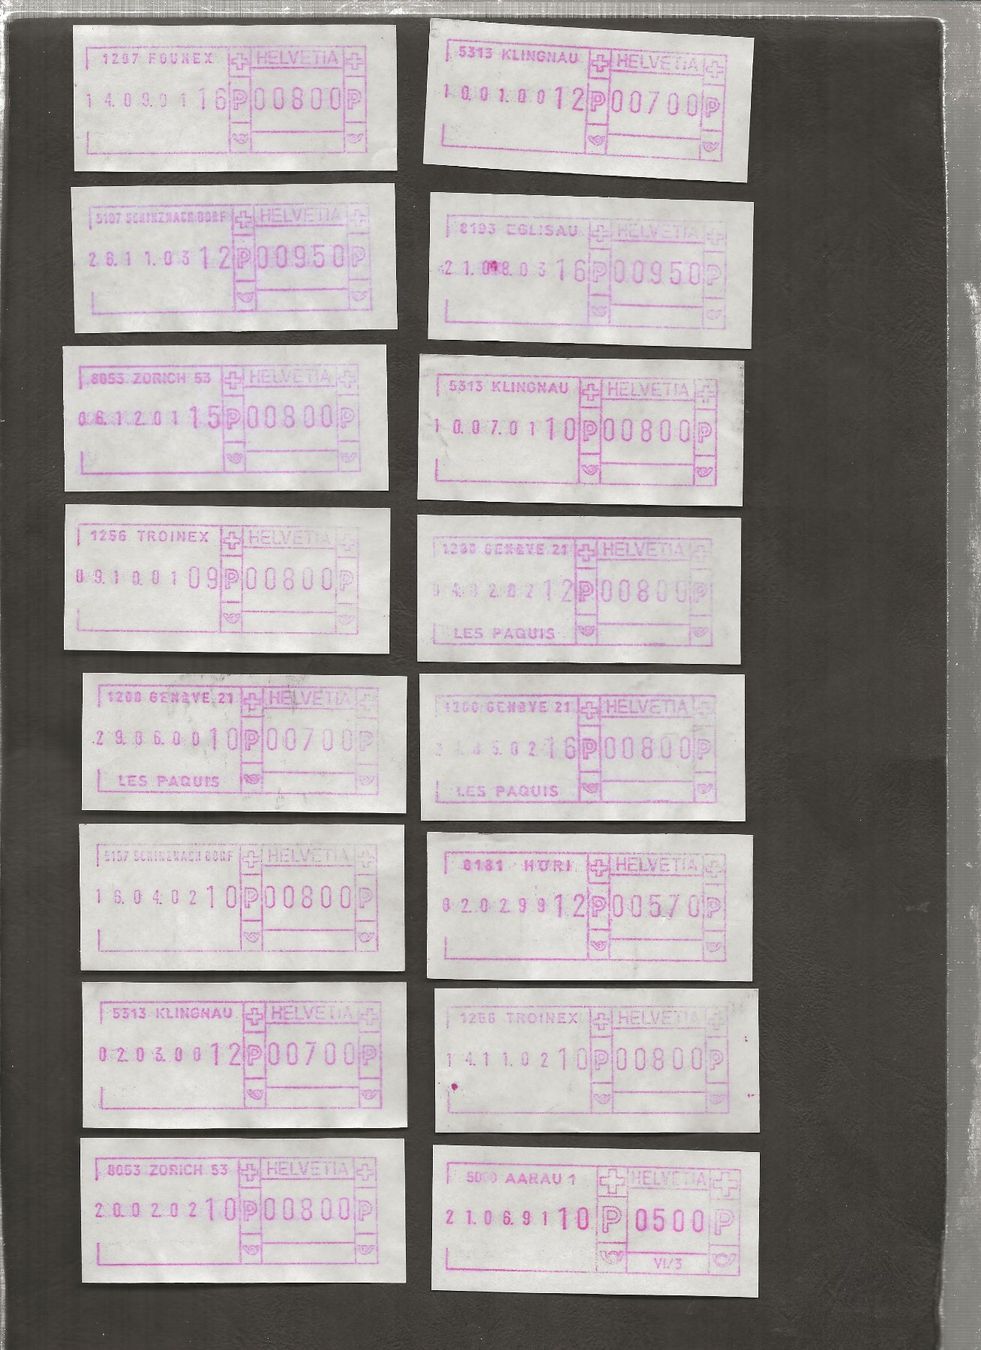 1297 FOUNEX HELVETIA
14.09.01 16 P 00800 P
5313 KLINGNAU HELVETIA
10.01.00 12 P 00700 P
5107 SCHINZNACH DORF HELVETIA
28.11.03 12 P 00950 P
8193 EGLISAU HELVETIA
21.08.03 16 P 00950 P
8053 ZÜRICH 53 HELVETIA
06.12.01 15 P 00800 P
5313 KLINGNAU HELVETIA
10.07.01 10 P 00800 P
1256 TROINEX HELVETIA
09.10.01 09 P 00800 P
GENÈVE 21 HELVETIA
12 P 00800 P
LES PAQUIS
1200 GENÈVE 21 HELVETIA
29.06.00 10 P 00700 P
LES PAQUIS
1200 GENÈVE 21 HELVETIA
05.02 16 P 00800 P
LES PAQUIS
5107 SCHINZNACH DORF HELVETIA
16.04.02 10 P 00800 P
8181 HÖRI HELVETIA
02.02.99 12 P 00570 P
5313 KLINGNAU HELVETIA
02.03.00 12 P 00700 P
1256 TROINEX HELVETIA
14.11.02 10 P 00800 P
8053 ZÜRICH 53 HELVETIA
20.02.02 10 P 00800 P
5000 AARAU 1 HELVETIA
21.06.91 10 P 0500 P
VI/3